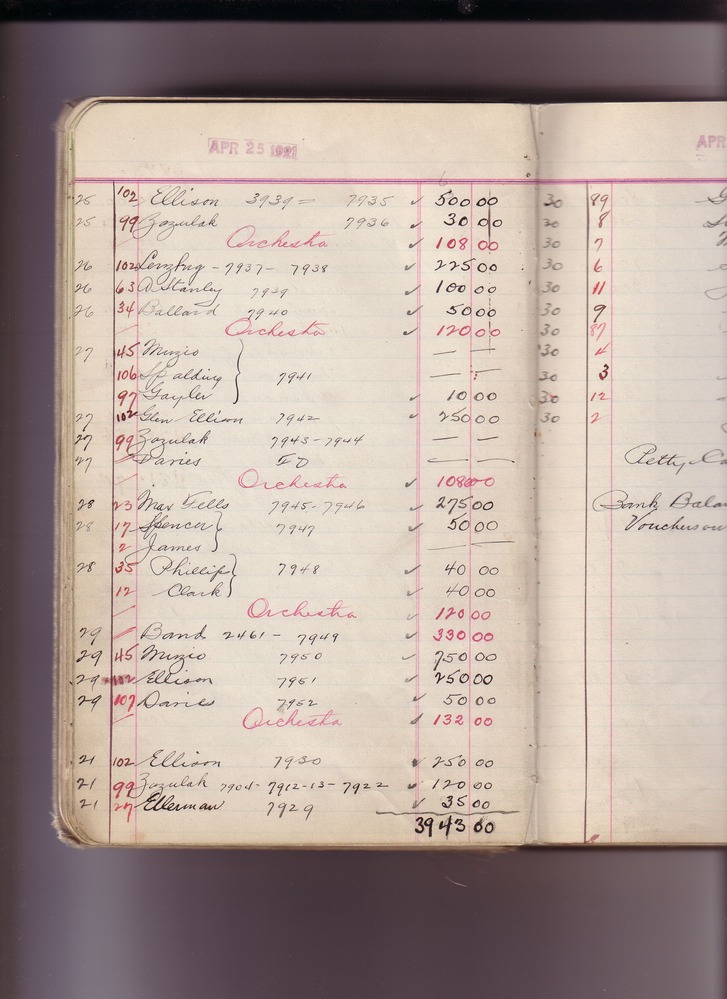 APR 25 1921
25 102 Ellison 3939 = 7935 ✓ 500 00
25 99 Zozulak 7936 ✓ 30 00
Orchestra ✓ 108 00
26 102 - 7937 - 7938 ✓ 225 00
26 63 A Stanley 7939 ✓ 100 00
26 34 Ballard 7940 ✓ 50 00
Orchestra ✓ 120 00
27 45 Muzio — —
106 Spalding } 7941 — —
97 Gayler ✓ 10 00
27 102 Glen Ellison 7942 ✓ 250 00
27 99 Zozulak 7943-7944 — —
27 Davies — —
Orchestra ✓ 108 00
28 23 Max Fells 7945-7946 ✓ 275 00
28 17 Spencer } 7947 ✓ 50 00
2 James — —
28 35 Phillip } 7948 ✓ 40 00
12 Clark ✓ 40 00
Orchestra ✓ 120 00
29 Band 2461 - 7949 ✓ 330 00
29 45 Muzio 7950 ✓ 750 00
29 102 Ellison 7951 ✓ 250 00
29 107 Davies 7952 ✓ 50 00
Orchestra ✓ 132 00
21 102 Ellison 7930 ✓ 250 00
21 99 Zozulak 7904-7912-13-7922 ✓ 120 00
21 27 Ellerman 7929 ✓ 35 00
3943 00
APR
30 89
30 8
30 7
30 6
30 11
30 9
30 87
30 4
30 3
30 12
30 2
Petty Ca
Bank Bala
Vouchers on